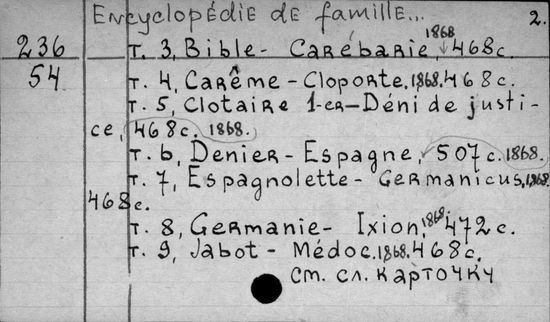 Encyclopédie de famille... 2.
236 т. 3, Bible - Carébarie, 1868 468 с.
54
т. 4, Carême - Cloporte. 1868. 468 с.
т. 5, Clotaire 1-er - Déni de justi-
ce, 468 с. 1868.
т. 6, Denier - Espagne, 507 с. 1868.
т. 7, Espagnolette - Germanicus, 1868.
468 с.
т. 8, Germanie - Ixion, 1868. 472 с.
т. 9, Jabot - Médoc. 1868. 468 с.
См. сл. карточку